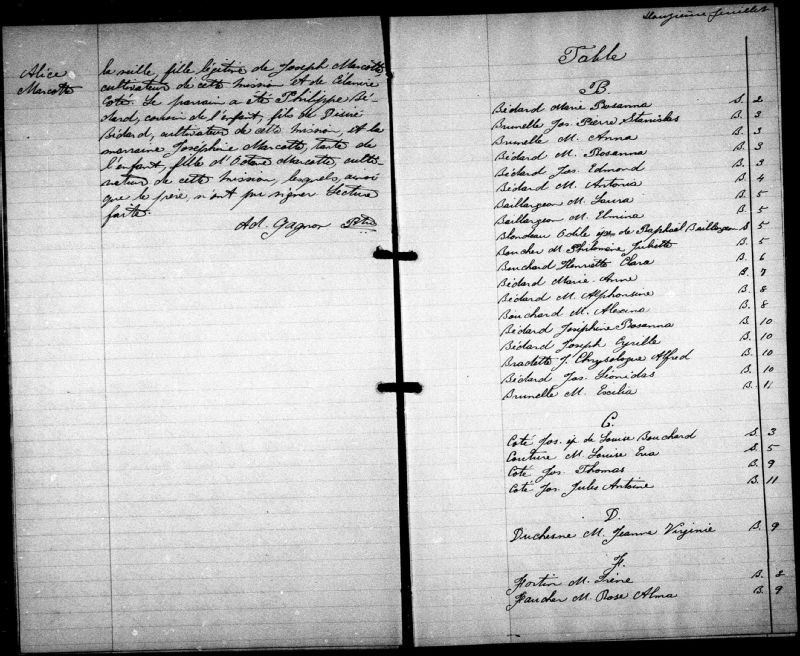 Alice
Marcotte
la veille, fille légitime de Joseph Marcotte
cultivateur de cette mission et de Célanire
Coté. Le parrain a été Philippe Bé-
dard, cousin de l'enfant, fils de Désiré
Bédard, cultivateur de cette mission, et la
marraine Joséphine Marcotte, tante de
l'enfant, fille d'Octave Marcotte culti-
vateur de cette mission, lesquels, ainsi
que le père, n'ont pu signer Lecture
faite.
Ad. Gagnon Ptre
Douzième feuillet
Table
B.
Bédard Marie Rosanna S. 2
Brunelle Jos. Pierre Stanislas B. 3
Brunelle M. Anna B. 3
Bédard M. Rosanna B. 3
Bédard Jos. Edmond B. 3
Bédard M. Antonia B. 4
Baillargeon M. Laura B. 5
Baillargeon M. Elmina B. 5
Blondeau Odile épse de Raphaël Baillargeon S 5
Boucher M. Philomène Juliette B. 5
Bouchard Henriette Clara B. 6
Bédard Marie Anne B. 7
Bédard M. Alphonsine B. 8
Bouchard M. Alexina B. 8
Bédard Joséphine Rosanna B. 10
Bédard Joseph Cyrille B. 10
Bradette J. Chrysologue Alfred B. 10
Bédard Jos. Léonidas B. 10
Brunelle M. Excilia B. 11
C.
Coté Jos. ép. de Louise Bouchard S. 3
Couture M. Louise Eva S. 5
Coté Jos Thomas B. 9
Coté Jos Jules Antoine B. 11
D.
Duchesne M. Jeanne Virginie B. 9
F.
Fortin M. Irène B. 8
Faucher M. Rose Alma B. 9